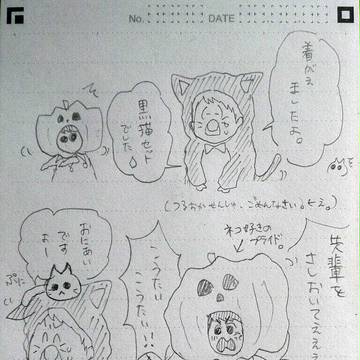 No.
DATE
着がえ
ましたよ。
黒猫セット
でした
(つるおかせんしゅ、ごめんなさい。
先輩を
さしおいてえええ
ネコ好きの
プライド。
こうたい
こうたい!!
おにあい
です
よー
ぷに